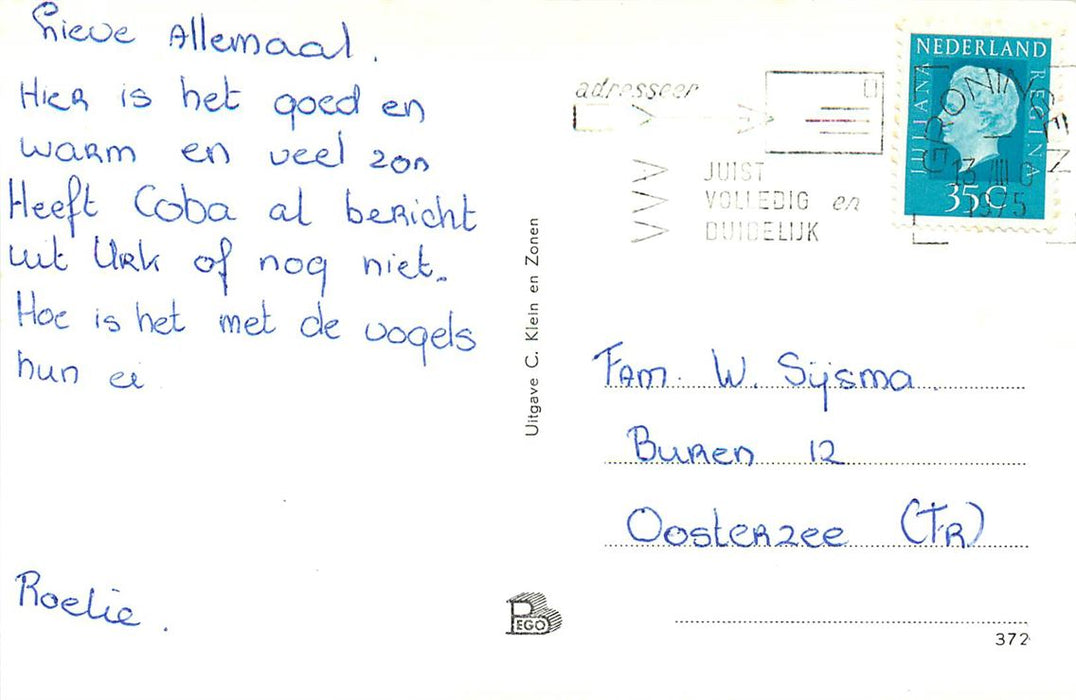 Lieve Allemaal.
Hier is het goed en
warm en veel zon
Heeft Coba al bericht
uit Urk of nog niet.
Hoe is het met de vogels
hun ei
Roelie.
Uitgave C. Klein en Zonen
BEGO
adresseer
JUIST
VOLLEDIG en
DUIDELIJK
NEDERLAND
JULIANA
REGINA
35c
GRONINGEN
1975
Fam. W. Sijsma.
Buren 12
Oosterzee (Fr)
372